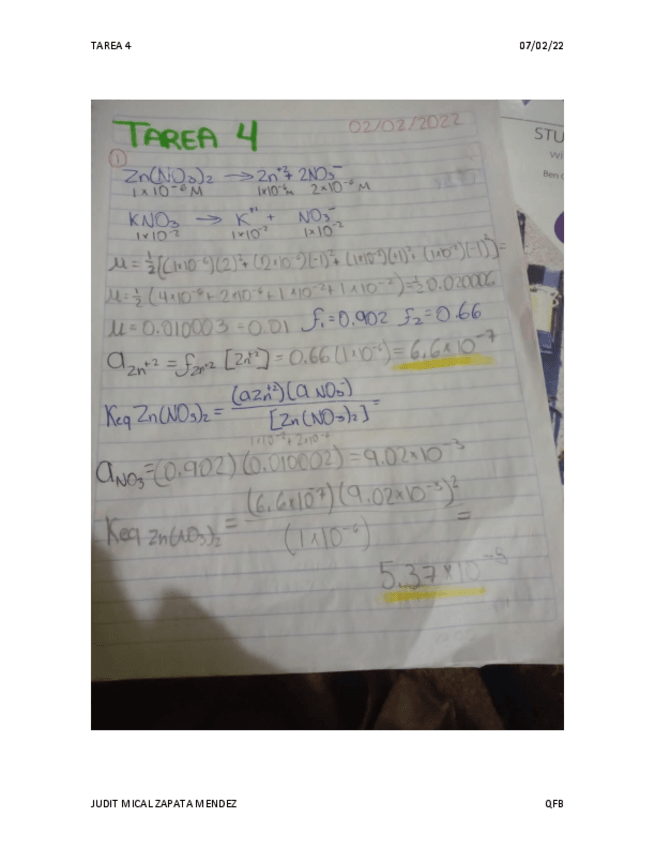 TAREA 4 07/02/22
TAREA 4 02/02/2022
STU
Wi
Ben
①
Zn(NO₃)₂ → Zn⁺² + 2NO₃⁻
1x10⁻⁶M 1x10⁻⁶M 2x10⁻⁶M
KNO₃ → K⁺ + NO₃⁻
1x10⁻² 1x10⁻² 1x10⁻²
μ = ½[(1x10⁻⁶)(2)² + (2x10⁻⁶)(-1)² + (1x10⁻²)(+1)² + (1x10⁻²)(-1)²] =
μ = ½(4x10⁻⁶ + 2x10⁻⁶ + 1x10⁻² + 1x10⁻²) = ½ 0.020006
μ = 0.010003 = 0.01 f₁ = 0.902 f₂ = 0.66
a Zn⁺² = f Zn⁺² [Zn⁺²] = 0.66(1x10⁻⁶) = 6.6x10⁻⁷
Keq Zn(NO₃)₂ = (aZn⁺²)(a NO₃⁻) / [Zn(NO₃)₂] =
1x10⁻² + 2x10⁻⁶
a NO₃ = (0.902)(0.010002) = 9.02x10⁻³
Keq Zn(NO₃)₂ = (6.6x10⁻⁷)(9.02x10⁻³)² / (1x10⁻⁶) =
5.37x10⁻⁵
JUDIT MICAL ZAPATA MENDEZ QFB